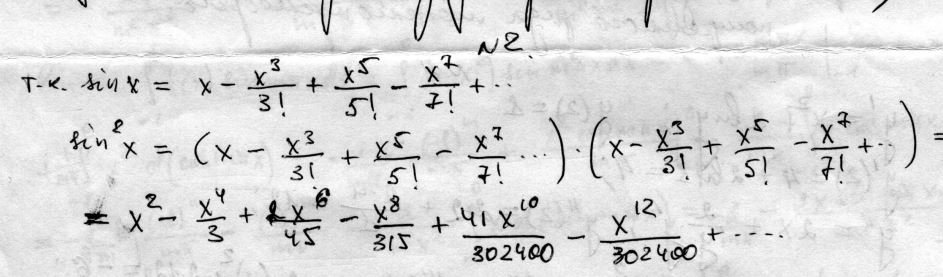 N2.
т.к. sin x = x - x³/3! + x⁵/5! - x⁷/7! + ...
sin²x = (x - x³/3! + x⁵/5! - x⁷/7! ...) · (x - x³/3! + x⁵/5! - x⁷/7! + ...) =
= x² - x⁴/3 + 2x⁶/45 - x⁸/315 + 41x¹⁰/302400 - x¹²/302400 + ....